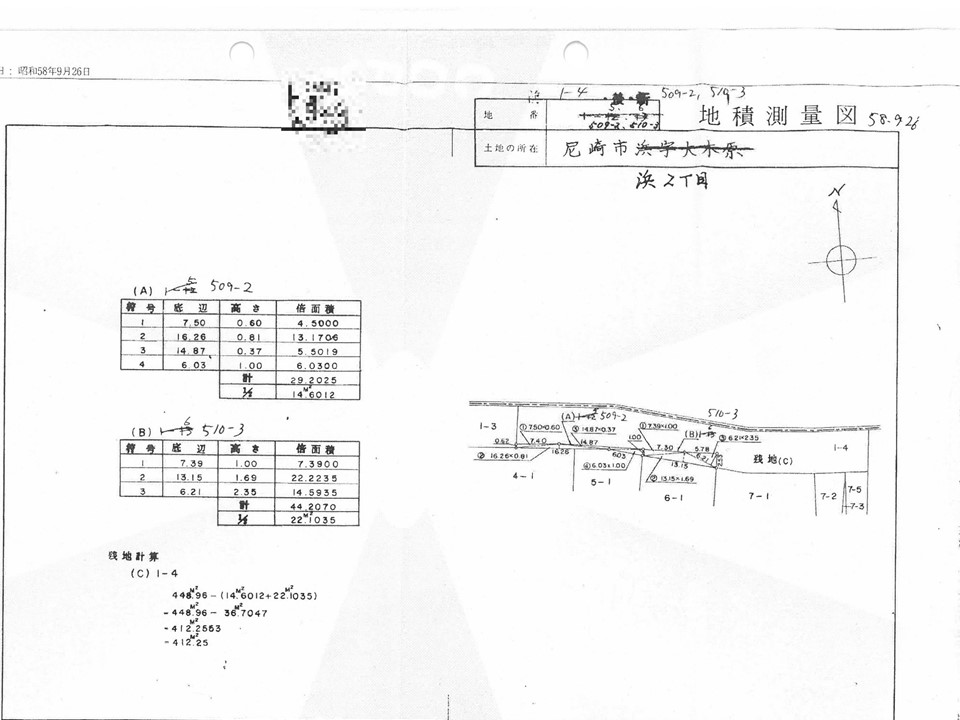 日：昭和58年9月26日
浜 1-4 ・後・新 509-2, 510-3
地番 5 6
509-2、510-3
地積測量図 58.9.26
土地の所在 尼崎市浜字大木原
浜2丁目
N
(A) 5 509-2
符号 底辺 高さ 倍面積
1 7.50 0.60 4.5000
2 16.26 0.81 13.1706
3 14.87 0.37 5.5019
4 6.03 1.00 6.0300
計 29.2025
1/2 14.6012 M²
(B) 6 510-3
符号 底辺 高さ 倍面積
1 7.39 1.00 7.3900
2 13.15 1.69 22.2235
3 6.21 2.35 14.5935
計 44.2070
1/2 22.1035 M²
残地計算
(C) 1-4
448.96M²-(14.6012M²+22.1035M²)
=448.96M²-36.7047M²
=412.2553M²
=412.25M²
(A) 509-2
510-3
1-3
①7.50×0.60
③14.87×0.37
①7.39×1.00
(B)
③6.21×2.35
0.62
7.40
14.87
1.00
7.30
5.78
6.21
1-4
②16.26×0.81
16.26
6.03
④6.03×1.00
13.15
②13.15×1.69
残地(C)
4-1
5-1
6-1
7-1
7-2
7-5
7-3